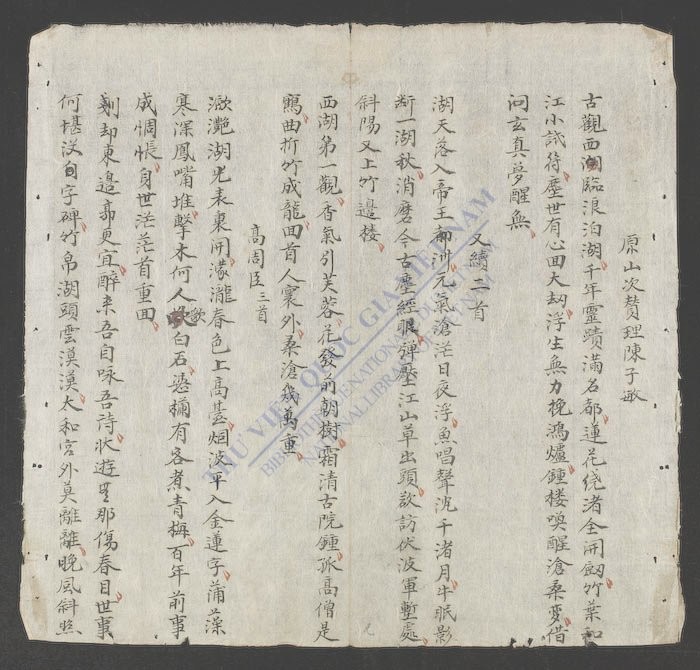 原山次贊理陳子敏
古觀西湖臨浪泊湖千年靈蹟滿名都蓮花绕渚全開劔竹葉和
江小試符塵世有心田大劫浮生無力挽鴻爐鍾楼喚醒滄桑夢借
问玄真夢醒無
又續二首
湖天落入帝王都洲元氣滄茫日夜浮魚唱聲沈千渚月牛眠影
断一湖秋消磨今古塵經眼弹壓江山草出頭欲訪伏波軍塹處
斜陽又上竹邉楼
西湖第一觀香氣引芙蓉花發前朝樹霜清古院鍾孤高僧是
鶴曲折竹成龍回首人寰外桑滄幾萬重
高周臣三首
潋灧湖光表裏開濛瀧春色上高䑓烟波平入金蓮字蒲藻
寒深鳳嘴堆擊木何人歌白石憑欄有客煮青梅百年前事
成惆悵身世茫茫首重回
剗却東邉郭更宜醉来吾自咏吾詩状遊那傷春目世事
何堪没字碑竹帛湖頭雲漠漠太和宮外莫離離晚風斜照
THƯ VIỆN QUỐC GIA VIỆT NAM
BIBLIOTHÈQUE NATIONALE DU VIETNAM
NATIONAL LIBRARY OF VIETNAM